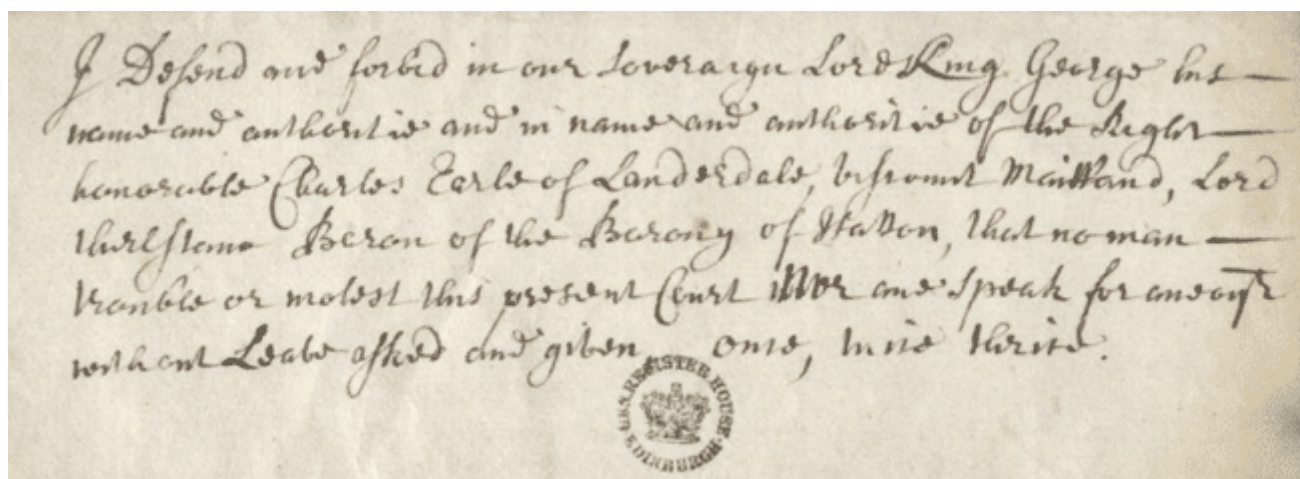 I Defend and forbid in our Soveraign Lord King George his
name and authoritie and in name and authoritie of the Right
honorable Charles Earle of Lauderdale, viscount Maitland, Lord
thirlstane Baron of the Barony of Hatton, that no man
trouble or molest this present Court Nor ane speak for ane oyr
without Leave asked and given once, twice thrice.
GEN. REGISTER HOUSE
EDINBURGH